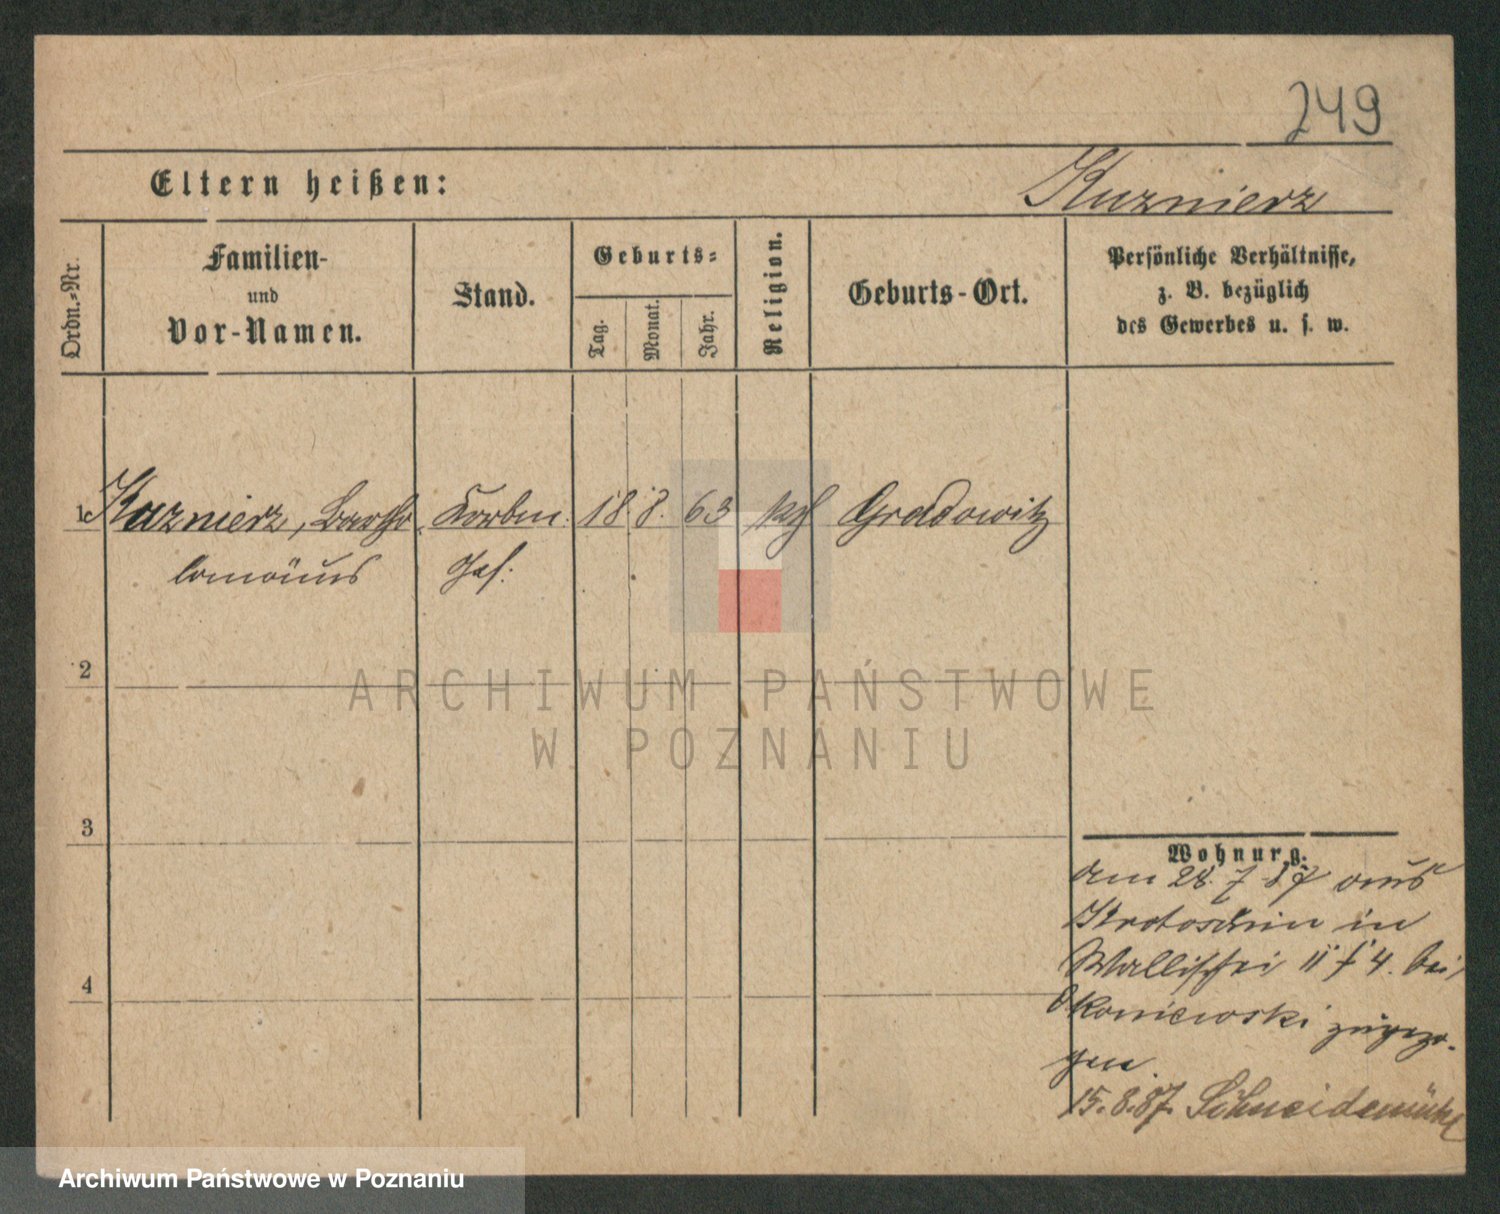 249
Eltern heißen:
Kuznierz
Ordn.=Nr.
Familien-
und
Vor-Namen.
Stand.
Geburts=
Tag.
Monat.
Jahr.
Religion.
Geburts-Ort.
Persönliche Verhältnisse,
z. B. bezüglich
des Gewerbes u. s. w.
1 Kuznierz, Bartho 18 8. 63 kth Gradowitz
lomäus
2
ARCHIWUM PAŃSTWOWE
W POZNANIU
3
Wohnung.
am 28. 7 87 aus
Krotoschin in
Wallischei 4. bei
Okoniewski zugezo-
gen.
4
15.8.87. Schneidemühl
Archiwum Państwowe w Poznaniu